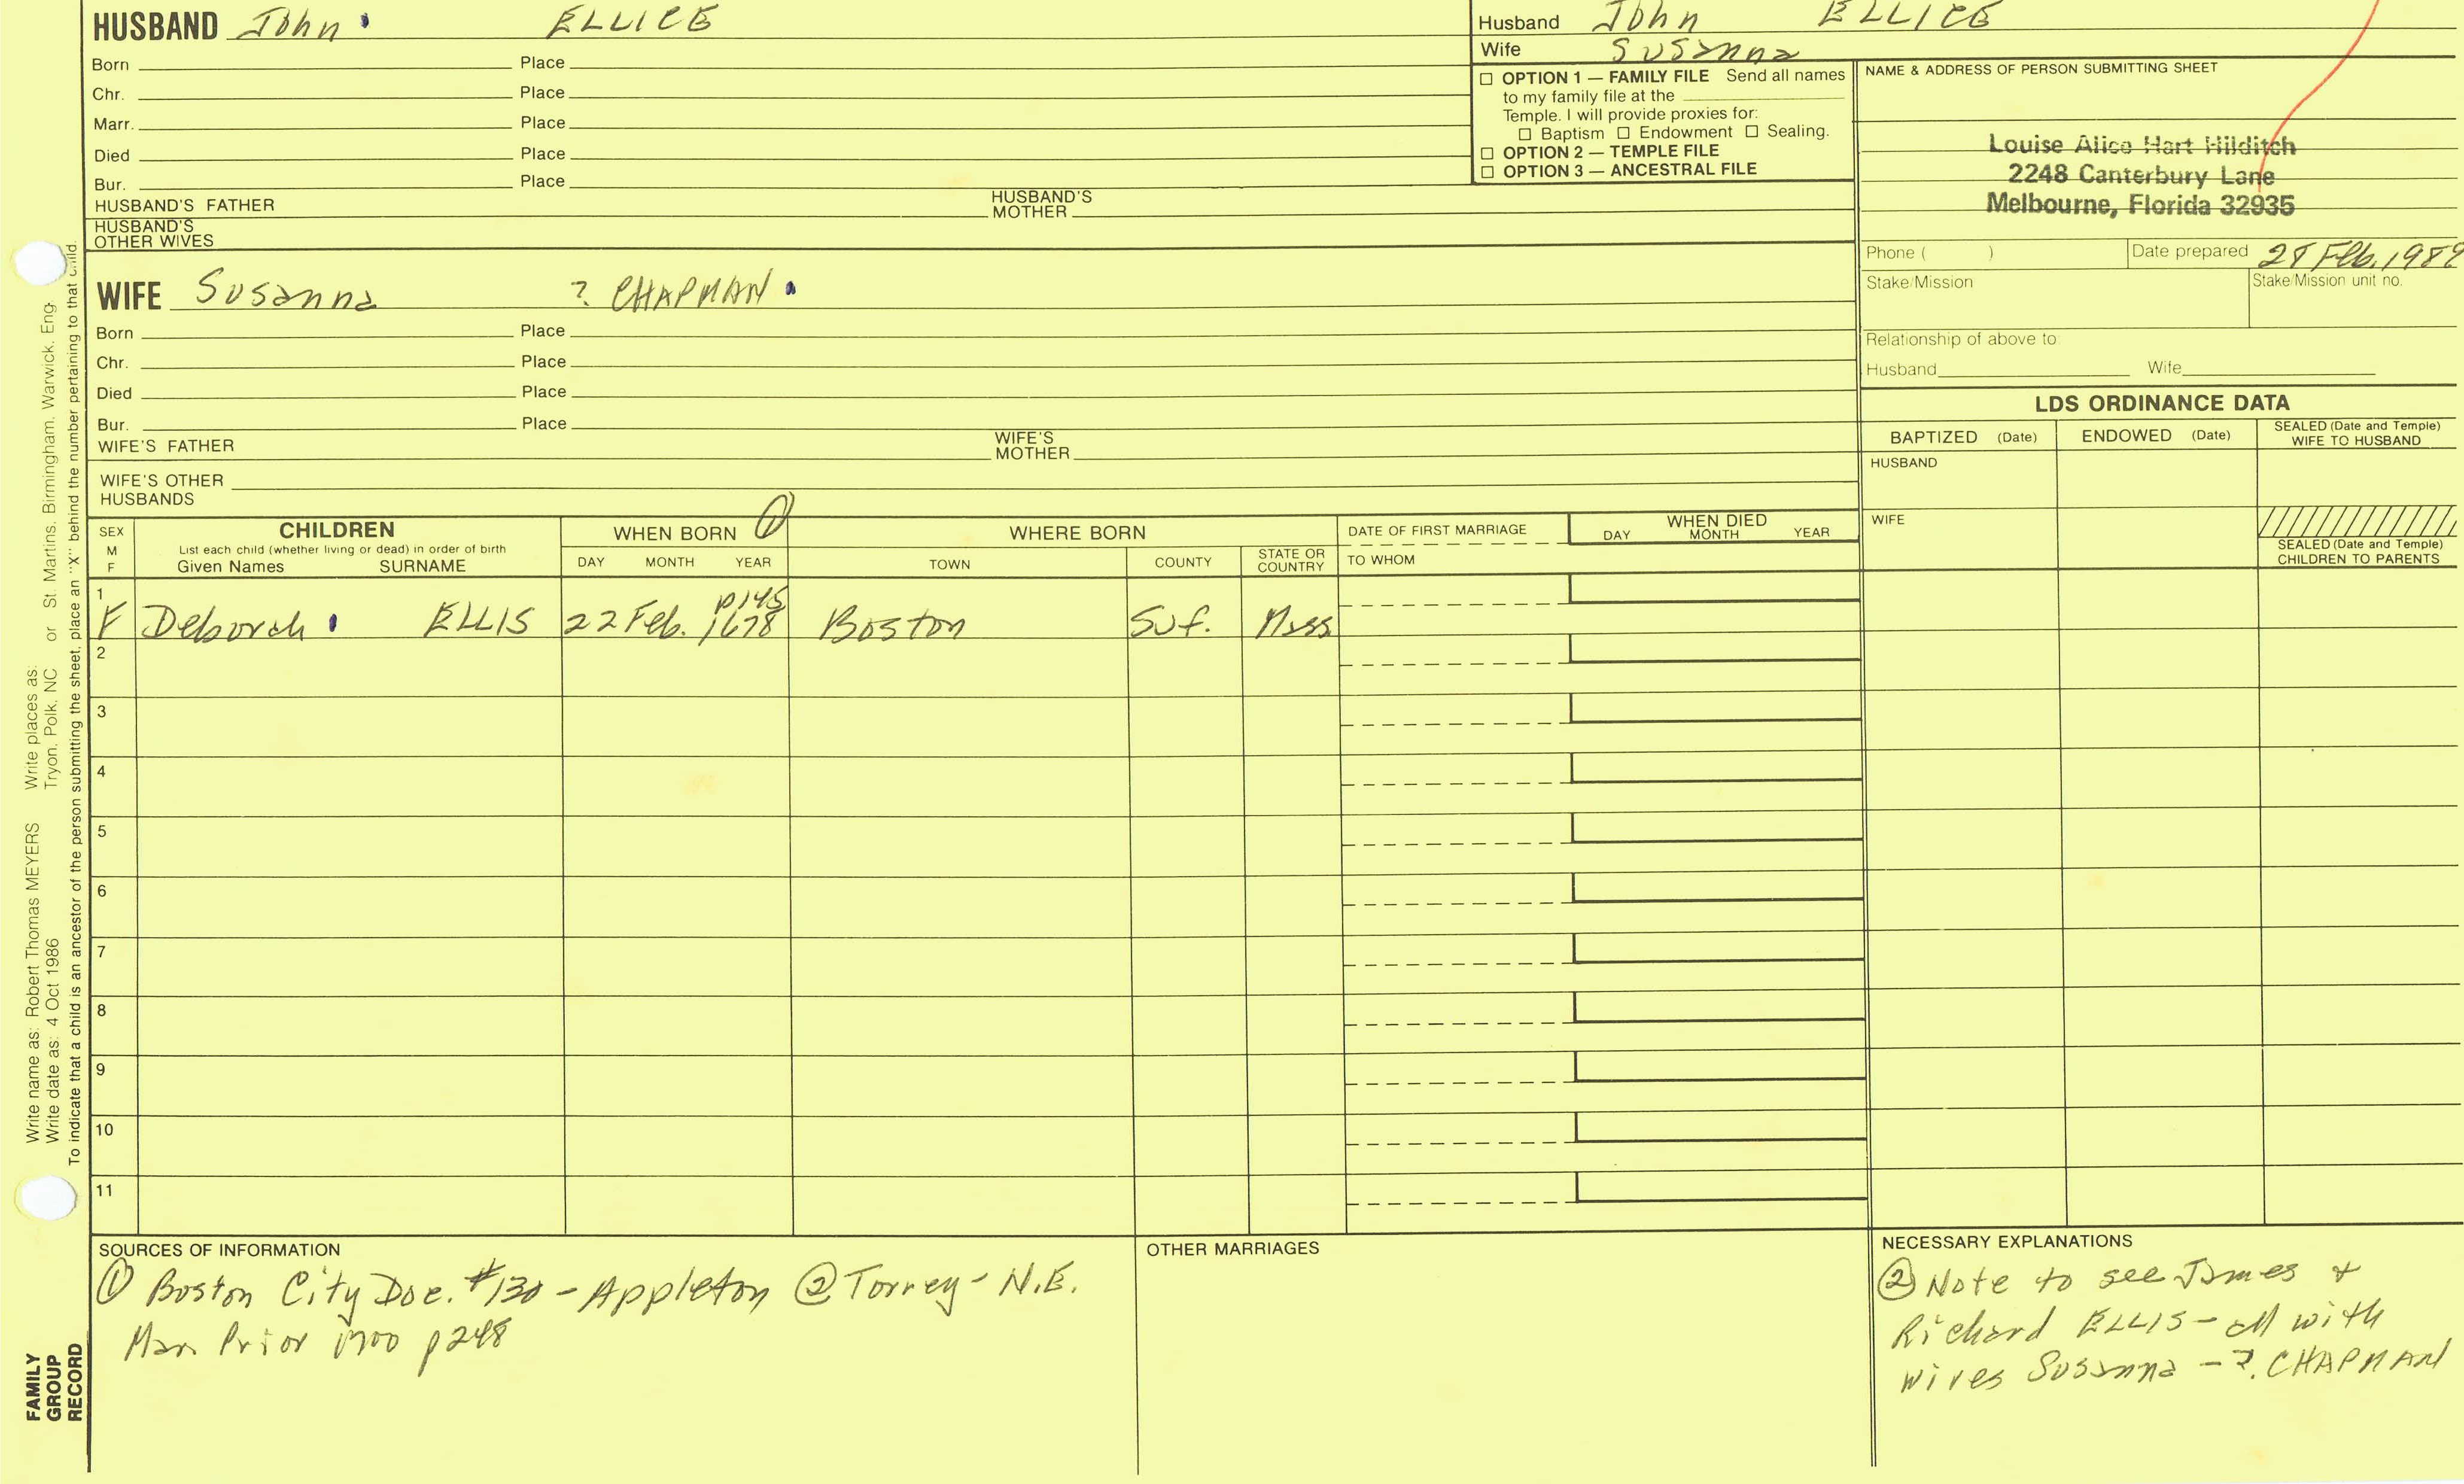 HUSBAND John ELLICE
Born Place
Chr. Place
Marr. Place
Died Place
Bur. Place
HUSBAND'S FATHER HUSBAND'S MOTHER
HUSBAND'S OTHER WIVES
Husband John ELLICE
Wife Susanna
☐ OPTION 1 — FAMILY FILE Send all names
to my family file at the
Temple. I will provide proxies for:
☐ Baptism ☐ Endowment ☐ Sealing.
☐ OPTION 2 — TEMPLE FILE
☐ OPTION 3 — ANCESTRAL FILE
NAME & ADDRESS OF PERSON SUBMITTING SHEET
Louise Alice Hart Hilditch
2248 Canterbury Lane
Melbourne, Florida 32935
Phone ( ) Date prepared Feb. 
Stake/Mission Stake/Mission unit no.
Relationship of above to:
Husband Wife
WIFE Susanna ? CHAPMAN
Born Place
Chr. Place
Died Place
Bur. Place
WIFE'S FATHER WIFE'S MOTHER
WIFE'S OTHER HUSBANDS
LDS ORDINANCE DATA
BAPTIZED (Date) ENDOWED (Date) SEALED (Date and Temple) WIFE TO HUSBAND
HUSBAND
WIFE
SEALED (Date and Temple) CHILDREN TO PARENTS
SEX M F
CHILDREN
List each child (whether living or dead) in order of birth
Given Names SURNAME
WHEN BORN ①
DAY MONTH YEAR
WHERE BORN
TOWN COUNTY STATE OR COUNTRY
DATE OF FIRST MARRIAGE
TO WHOM
WHEN DIED
DAY MONTH YEAR
1
p145
F Deborah ELLIS 22 Feb. 1678 Boston Suf. Mass
2
3
4
5
6
7
8
9
10
11
SOURCES OF INFORMATION
① Boston City Doc. #130 - Appleton ② Torrey - N.E.
Mar. Prior 1700 p248
OTHER MARRIAGES
NECESSARY EXPLANATIONS
② Note to see James +
Richard ELLIS - all with
wives Susanna - ?. CHAPMAN
Write name as: Robert Thomas MEYERS Write places as:
Write date as: 4 Oct 1986 Tryon, Polk, NC or St. Martins, Birmingham, Warwick, Eng.
To indicate that a child is an ancestor of the person submitting the sheet, place an "X" behind the number pertaining to that child.
FAMILY
GROUP
RECORD